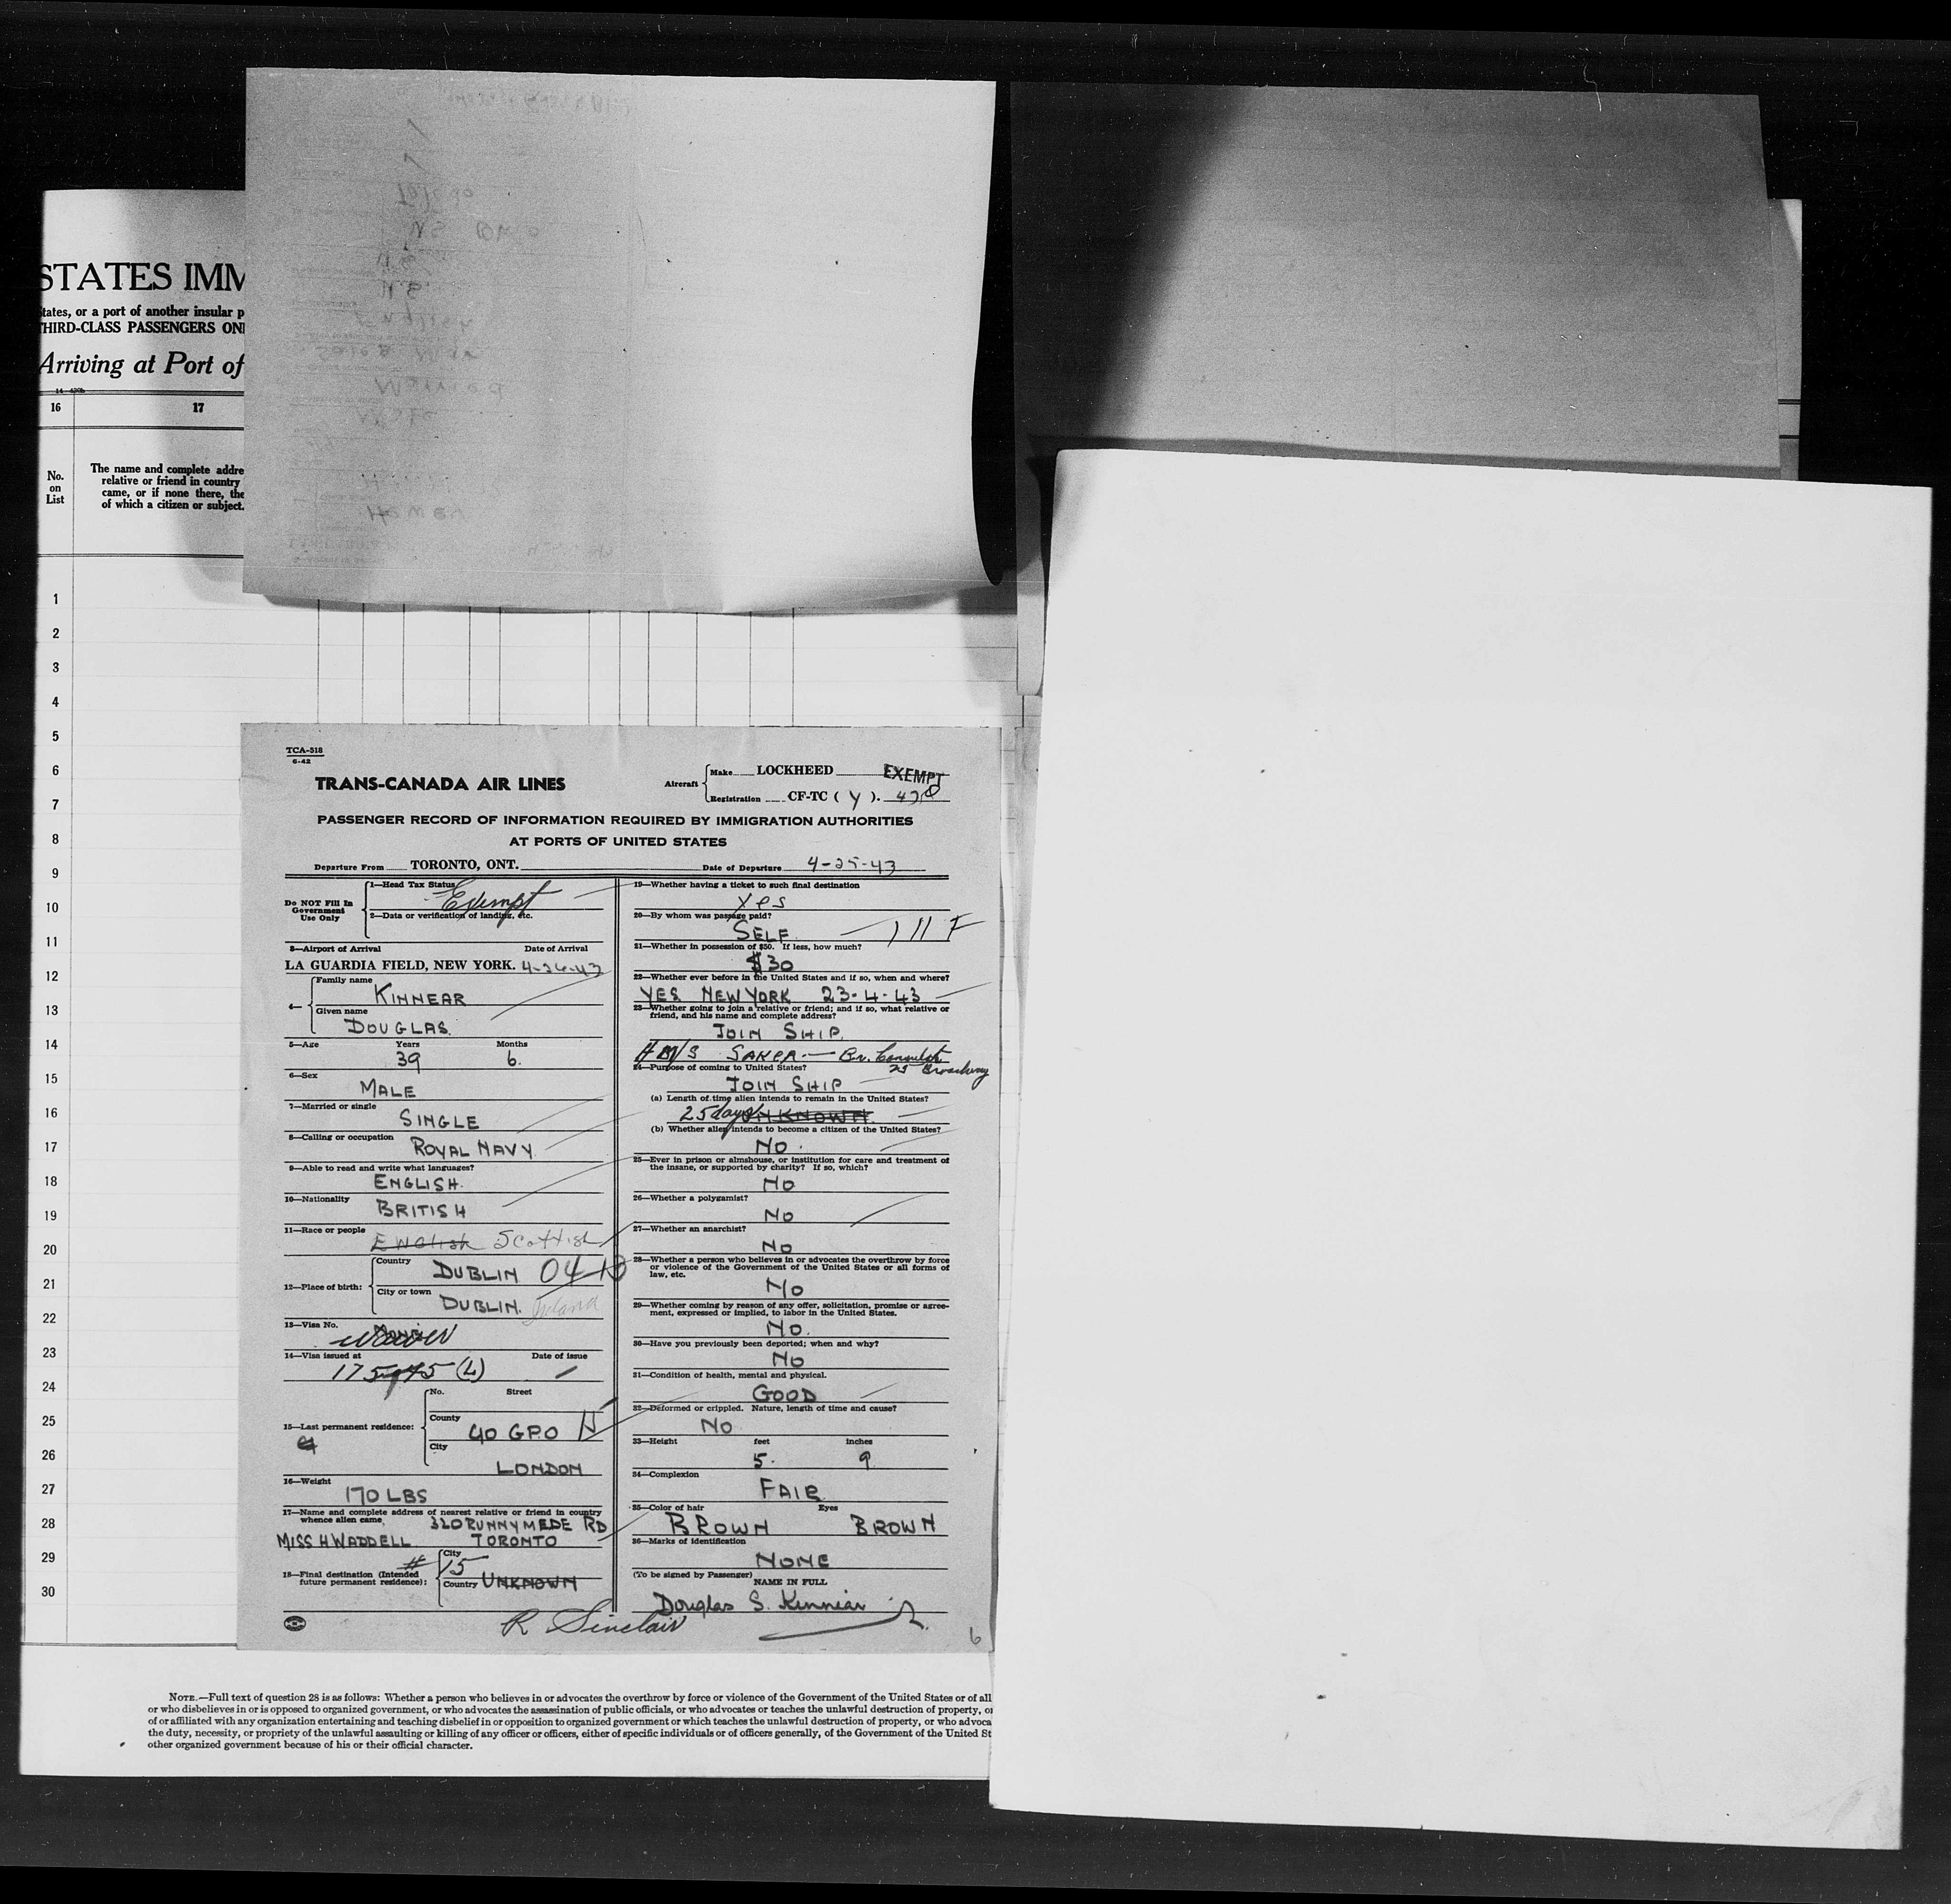 STATES IMM
States, or a port of another insular p
THIRD-CLASS PASSENGERS ON
Arriving at Port of
16 17
No.
on
List
The name and complete addre
relative or friend in country
came, or if none there, the
of which a citizen or subject.
1
2
3
4
5
6
7
8
9
10
11
12
13
14
15
16
17
18
19
20
21
22
23
24
25
26
27
28
29
30
TCA-518
6-42
TRANS-CANADA AIR LINES
Aircraft
Make LOCKHEED EXEMPT
Registration CF-TC ( Y ). 438
PASSENGER RECORD OF INFORMATION REQUIRED BY IMMIGRATION AUTHORITIES
AT PORTS OF UNITED STATES
Departure From TORONTO, ONT. Date of Departure 4-25-43
Do NOT Fill In
Government
Use Only
1—Head Tax Status
Exempt
2—Data or verification of landing, etc.
3—Airport of Arrival Date of Arrival
LA GUARDIA FIELD, NEW YORK. 4-26-43
4—
Family name
KINNEAR
Given name
DOUGLAS.
5—Age Years Months
39 6.
6—Sex
MALE
7—Married or single
SINGLE
8—Calling or occupation
ROYAL NAVY
9—Able to read and write what languages?
ENGLISH.
10—Nationality
BRITISH
11—Race or people
English Scottish
12—Place of birth:
Country
DUBLIN 04
City or town
DUBLIN. Ireland
13—Visa No.
waiver
14—Visa issued at Date of issue
15—Last permanent residence:
No. Street
County
GPO
City
LONDON
16—Weight
170 LBS
17—Name and complete address of nearest relative or friend in country
whence alien came,
320 RUNNYMEDE RD
MISS H WADDELL TORONTO
18—Final destination (Intended
future permanent residence):
City
15
Country UNKNOWN
R Sinclair
19—Whether having a ticket to such final destination
Yes
20—By whom was passage paid?
SELF.
21—Whether in possession of $50. If less, how much?
$30
22—Whether ever before in the United States and if so, when and where?
YES NEW YORK 23-4-43
23—Whether going to join a relative or friend; and if so, what relative or
friend, and his name and complete address?
JOIN SHIP.
HMS SAKER — Br. Consulate
25 Broadway
24—Purpose of coming to United States?
JOIN SHIP
(a) Length of time alien intends to remain in the United States?
25 days UNKNOWN.
(b) Whether alien intends to become a citizen of the United States?
NO.
25—Ever in prison or almshouse, or institution for care and treatment of
the insane, or supported by charity? If so, which?
NO
26—Whether a polygamist?
NO
27—Whether an anarchist?
NO
28—Whether a person who believes in or advocates the overthrow by force
or violence of the Government of the United States or all forms of
law, etc.
NO
29—Whether coming by reason of any offer, solicitation, promise or agree-
ment, expressed or implied, to labor in the United States.
NO.
30—Have you previously been deported; when and why?
NO
31—Condition of health, mental and physical.
GOOD
32—Deformed or crippled. Nature, length of time and cause?
NO
33—Height feet inches
5. 9
34—Complexion
FAIR
35—Color of hair Eyes
BROWN BROWN
36—Marks of identification
NONE
(To be signed by Passenger)
NAME IN FULL
Douglas S. Kinnear
6
NOTE.—Full text of question 28 is as follows: Whether a person who believes in or advocates the overthrow by force or violence of the Government of the United States or of all
or who disbelieves in or is opposed to organized government, or who advocates the assassination of public officials, or who advocates or teaches the unlawful destruction of property, o
of or affiliated with any organization entertaining and teaching disbelief in or opposition to organized government or which teaches the unlawful destruction of property, or who advoca
the duty, necessity, or propriety of the unlawful assaulting or killing of any officer or officers, either of specific individuals or of officers generally, of the Government of the United St
other organized government because of his or their official character.